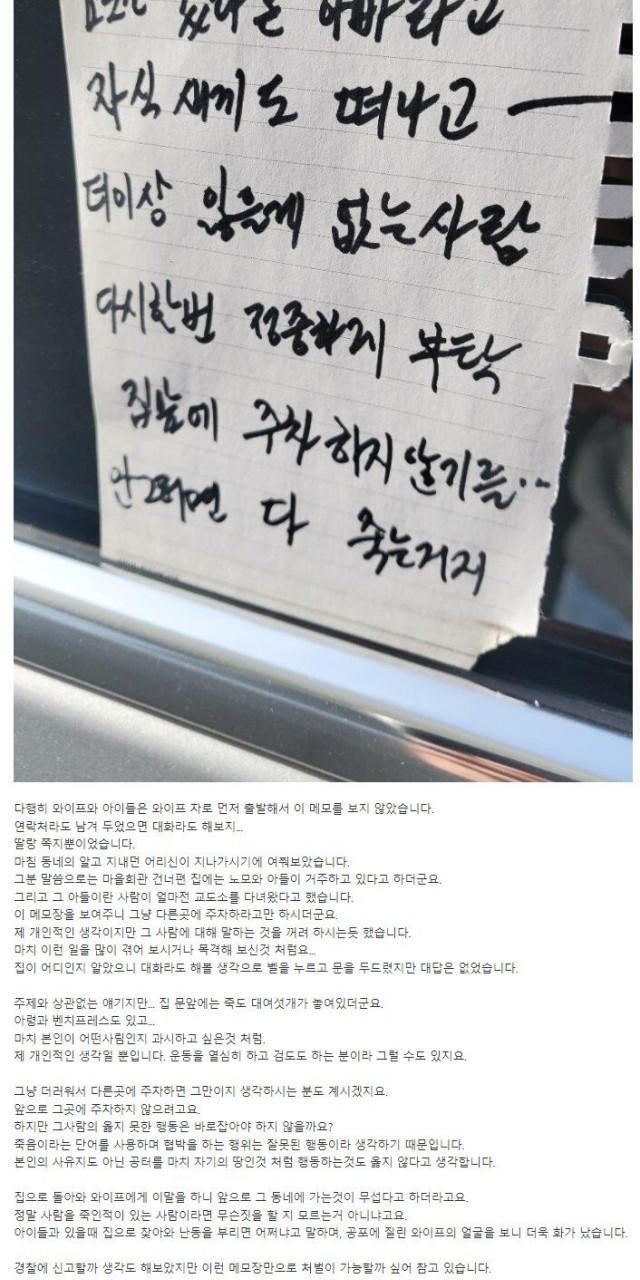 있다는 아빠라고
자식 새끼도 떠나고
더이상 잃을게 없는사람
다시한번 정중하게 부탁
집앞에 주차 하지 않기를..
안그러면 다 죽는거지
다행히 와이프와 아이들은 와이프 차로 먼저 출발해서 이 메모를 보지 않았습니다.
연락처라도 남겨 두었으면 대화라도 해보지...
딸랑 쪽지뿐이었습니다.
마침 동네의 알고 지내던 어리신이 지나가시기에 여쭤보았습니다.
그분 말씀으로는 마을회관 건너편 집에는 노모와 아들이 거주하고 있다고 하더군요.
그리고 그 아들이란 사람이 얼마전 교도소를 다녀왔다고 했습니다.
이 메모장을 보여주니 그냥 다른곳에 주차하라고만 하시더군요.
제 개인적인 생각이지만 그 사람에 대해 말하는 것을 꺼려 하시는듯 했습니다.
마치 이런 일을 많이 겪어 보시거나 목격해 보신것 처럼요...
집이 어디인지 알았으니 대화라도 해볼 생각으로 벨을 누르고 문을 두드렸지만 대답은 없었습니다.
주제와 상관없는 얘기지만... 집 문앞에는 죽도 대여섯개가 놓여있더군요.
아령과 벤치프레스도 있고...
마치 본인이 어떤사림인지 과시하고 싶은것 처럼.
제 개인적인 생각일 뿐입니다. 운동을 열심히 하고 검도도 하는 분이라 그럴 수도 있지요.
그냥 더러워서 다른곳에 주차하면 그만이지 생각하시는 분도 계시겠지요.
앞으로 그곳에 주차하지 않으려고요.
하지만 그사람의 옳지 못한 행동은 바로잡아야 하지 않을까요?
죽음이라는 단어를 사용하며 협박을 하는 행위는 잘못된 행동이라 생각하기 때문입니다.
본인의 사유지도 아닌 공터를 마치 자기의 땅인것 처럼 행동하는것도 옳지 않다고 생각합니다.
집으로 돌아와 와이프에게 이말을 하니 앞으로 그 동네에 가는것이 무섭다고 하더라고요.
정말 사람을 죽인적이 있는 사람이라면 무슨짓을 할 지 모르는거 아니냐고요.
아이들과 있을때 집으로 찾아와 난동을 부리면 어쩌냐고 말하며, 공포에 질린 와이프의 얼굴을 보니 더욱 화가 났습니다.
경찰에 신고할까 생각도 해보았지만 이런 메모장만으로 처벌이 가능할까 싶어 참고 있습니다.